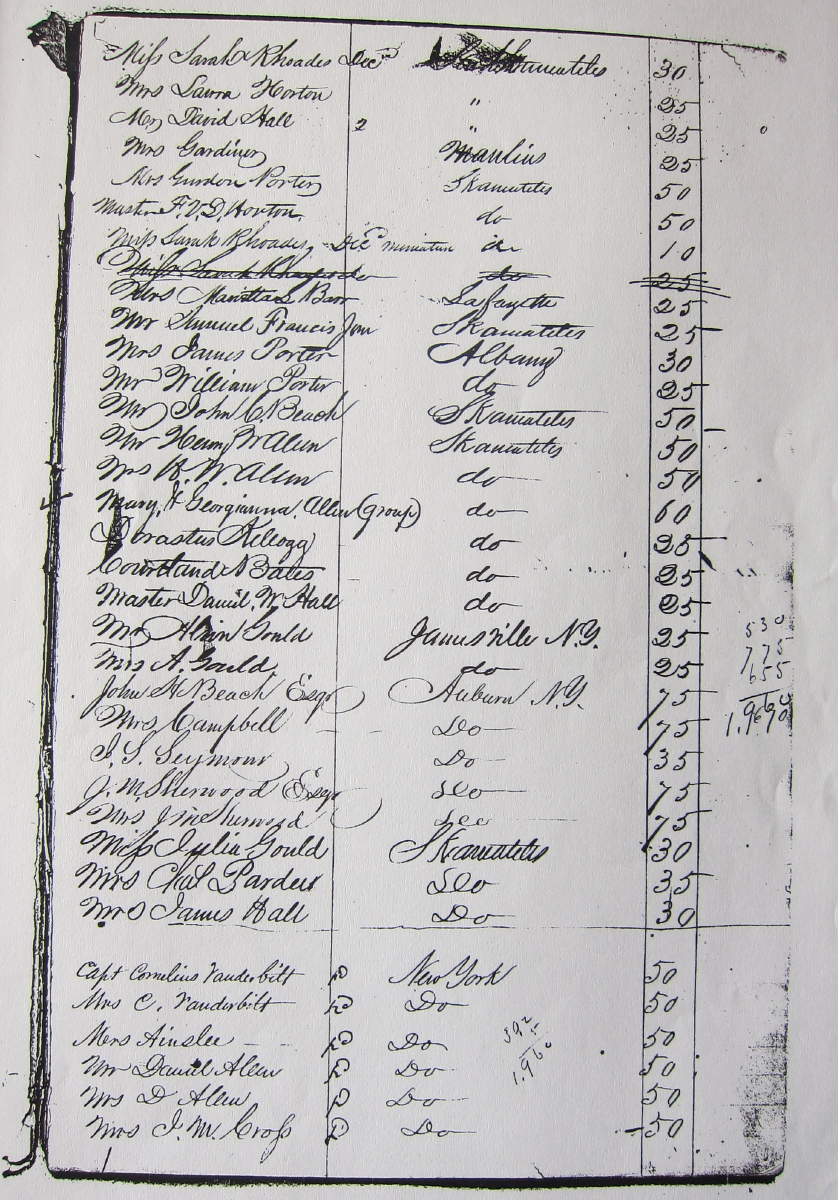 Miss Sarah Rhoades Decd Skaneateles 30
Mrs Laura Horton " 25
Mr David Hall 2 " 25
Mrs Gardiner Manlius 25
Mrs Gurdon Porter Skaneateles 50
Master F. V. D. Horton do 50
Miss Sarah Rhoades, Decd miniature do 10
Miss Sarah do 25
Mrs Barr Lafayette 25
Mr Samuel Francis Jun Skaneateles 25
Mrs James Porter Albany 30
Mr William Porter do 25
Mr John C. Beach Skaneateles 50
Mr Henry W Allen Skaneateles 50
Mrs H. W. Allen do 50
Mary & Georgianna Allen (group) do 60
Dorastus Kellogg do 25
Courtland Bates do 25
Master Daniel W. Hall do 25
Mr Gould Jamesville N.Y. 25
Mrs A. Gould do 25
John H Beach Esqr Auburn N.Y. 75
Mrs Campbell Do 75
J. S. Seymour Do 35
J. M. Sherwood Esqr Do 75
Mrs J M Sherwood Do 75
Miss Julia Gould Skaneateles 30
Mrs Chs Pardee Do 35
Mrs James Hall Do 30
530
775
655
1.960
Capt Cornelius Vanderbilt P New York 50
Mrs C. Vanderbilt P Do 50
Mrs Ainslee P Do 50
Mr Daniel Allen P Do 50
Mrs D Allen P Do 50
Mrs J. M. Cross P Do 50
392
1.960